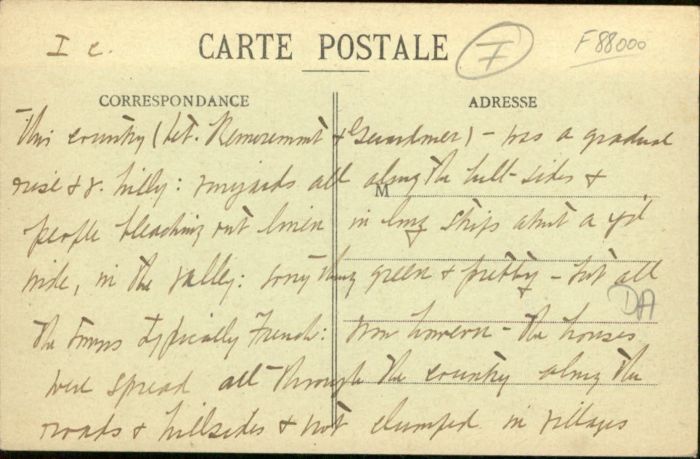 I c.
CARTE POSTALE
7
F 88000
CORRESPONDANCE
ADRESSE
This country (bet. Remiremont & Gerardmer) - was a gradual
rise & v. hilly: vineyards all along the hill-sides &
M
people bleaching out linen in long strips about a y'd
wide, in the valley: everything green & pretty - but all
DA
the towns typically French: now however - the houses
were spread all through the country along the
roads & hillsides & not clumped in villages